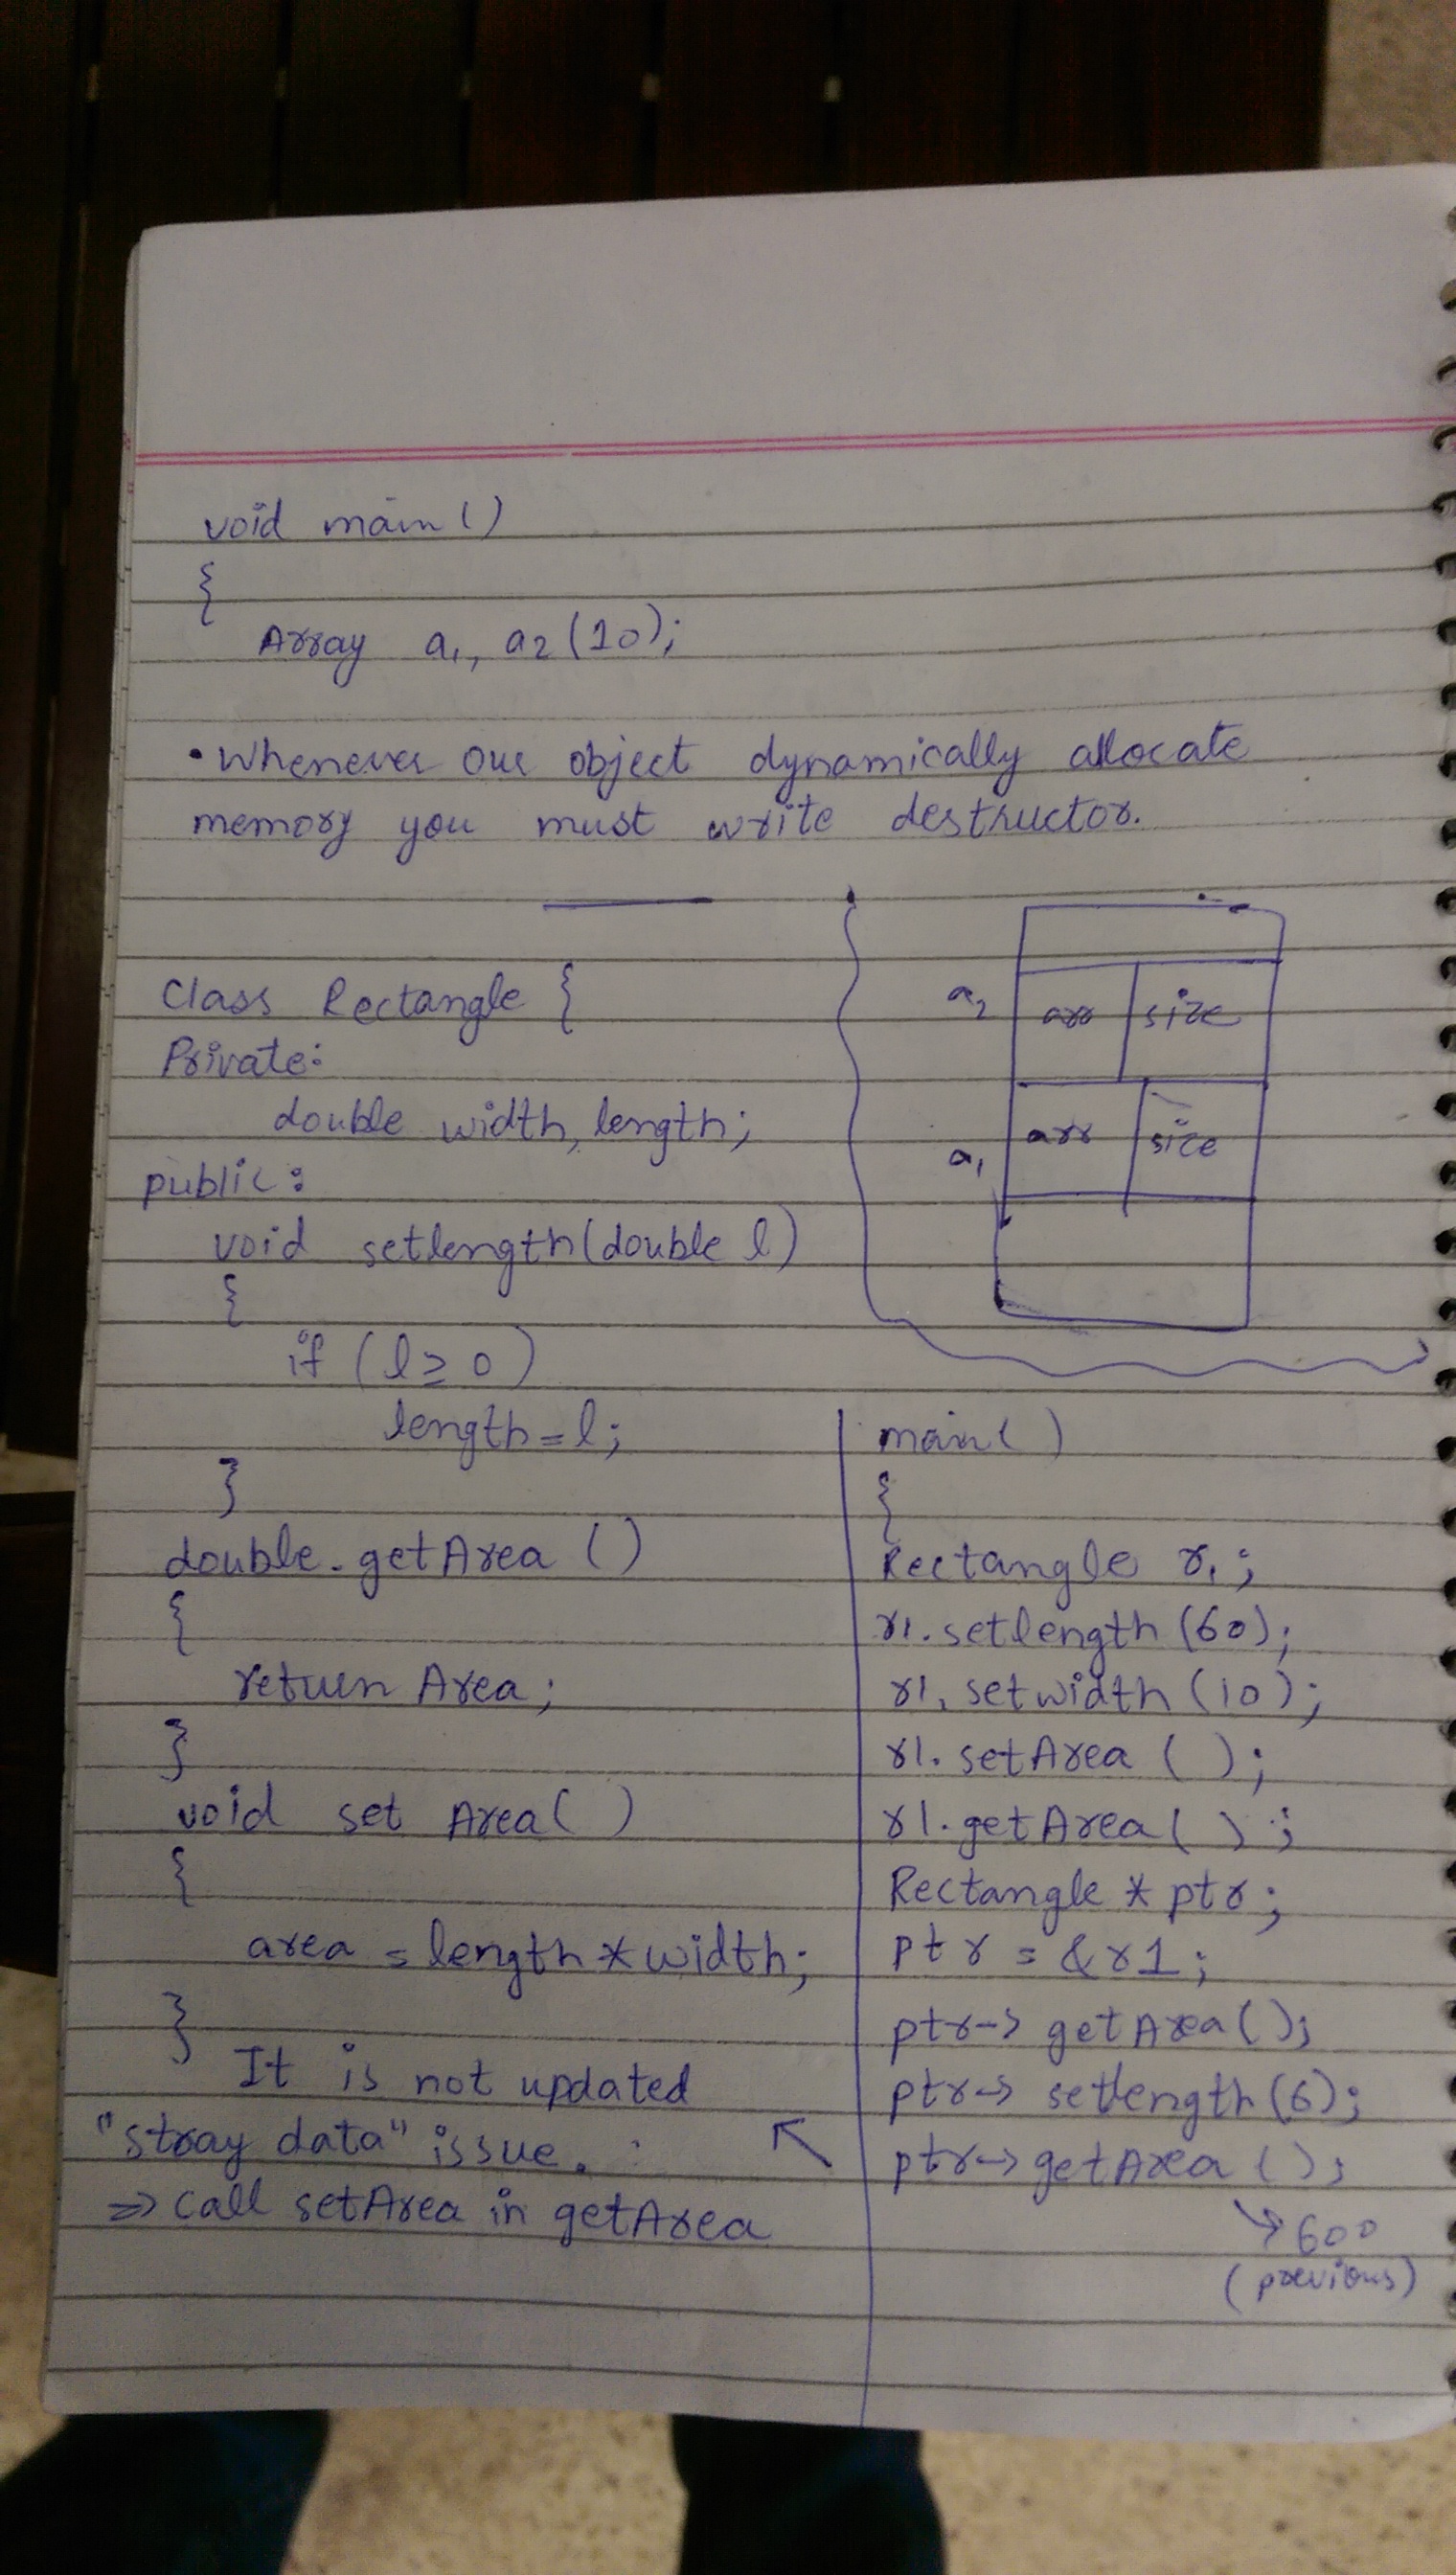 void main()
{
Array a1, a2(10);
• Whenever our object dynamically allocate
memory you must write destructor.
Class Rectangle {
Private:
double width, length;
public:
void setlength(double l)
{
if (l ≥ 0)
length = l;
}
double getArea ()
{
return Area;
}
void set Area()
{
area = length * width;
}
It is not updated
"stray data" issue.
⇒ call setArea in getArea
a2 arr size
a1 arr size
main()
{
Rectangle r1;
r1.setlength (60);
r1.setwidth (10);
r1.setArea ( );
r1.getArea( );
Rectangle * ptr;
ptr = &r1;
ptr-> getArea();
ptr-> setlength(6);
ptr-> getArea ();
↘ 600
(previous)